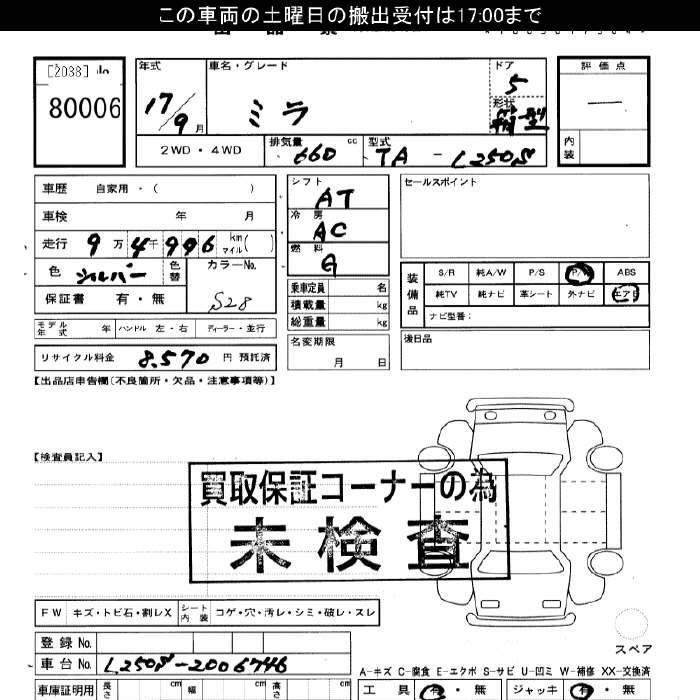 この車両の土曜日の搬出受付は17:00まで
[2038]
80006
年式
17/9月
車名・グレード
ミラ
ドア
5
形状
箱型
評価点
—
内装
2WD・4WD
排気量 660 cc
型式 TA - L250S
車歴 自家用・( )
車検 年 月
走行 9万4千996 km マイル( )
色 シルバー 色替
カラーNo. S28
保証書 有・無
モデル年式 年 ハンドル 左・右 ディーラー・並行
リサイクル料金 8,570 円 預託済
シフト AT
冷房 AC
燃料 G
乗車定員 名
積載量 kg
総重量 kg
名変期限
月 日
セールスポイント
装備品
S/R 純A/W P/S P/W ABS
純TV 純ナビ 革シート 外ナビ エアB
ナビ型番:
後日品
【出品店申告欄(不良箇所・欠品・注意事項等)】
【検査員記入】
買取保証コーナーの為
未検査
FW キズ・トビ石・割レX シート内装 コゲ・穴・汚レ・シミ・破レ・スレ
登録No.
車台No. L250S-2006746
スペア
A-キズ C-腐食 E-エクボ S-サビ U-凹ミ W-補修 XX-交換済
車庫証明用 長さ cm 幅 cm 高さ cm
工具 有・無 ジャッキ 有・無